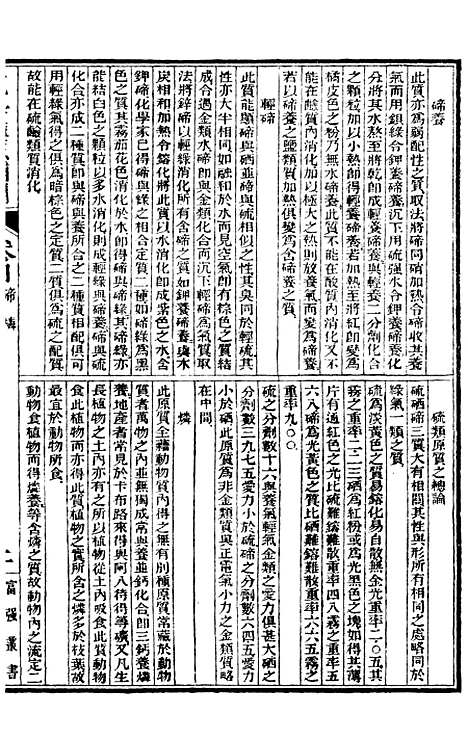 碲養
此質亦爲弱配性之質取法將碲同硝加熱令碲收其養
氣而用鋇綠令鉀養碲養沉下用硫强水合鉀養碲養化
分將其水熬至將乾卽成輕養碲養與輕養二分劑化合
之顆粒加以小熱卽得輕養碲養若加熱至將紅卽變爲
橘皮色之粉乃無水碲養此質不能在酸質內消化又不
能在鹼質內消化加以極大之熱則放養氣而變爲碲養
若以碲養之鹽類質加熱俱變爲含碲養之質
輕碲
此質能與碲與硒並碲與硫相似之性其臭同於輕硫其
性亦大半相同如融和於水而見空氣卽有棕色之質結
成合遇金類水碲卽與金類化合而沉下輕碲之氣質取
法將鋅碲以輕綠消化所有含碲之質如鉀養碲養與水
炭相和加熱令鎔化將此質以水消化卽成紫色之水含
鉀碲化學家已得碲與綠之相合定質二種如碲綠爲黑
色之質其霧茄花色消化於水卽得碲與碲養其碲綠亦
能結白色之顆粒以多水消化則成輕綠與碲養碲與硫
化合亦成二種質卽與碲與養所合之二種質相配俱可
用輕綠氣得之俱爲暗棕色之定質二質俱爲硫之配質
故能在硫鹼類質消化
碲 燐
硫類原質之總論
硫硒碲三質大有相關其性與形所有相同之處略同於
綠氣一類之質
硫爲淡黃色之質易鎔化易自散無金光重率二○五其
霧之重率二二三硒爲紅粉或爲光黑色之塊如得其薄
片有透紅色之光比硫難鎔難散重率四八霧之重率五
六八碲爲光黃色之質比硒難鎔難散重率六六五霧之
重率九○○
硫之分劑數十六與養氣輕氣金類之愛力俱甚大硒之
分劑數三九七五愛力小於硫碲之分劑數六四五愛力
小於硒此原質爲非金類質之正電氣小力之金類質略
在中間
燐
此原質全藉動物質內之燐無有別種原質常藏於動物
質者萬物之內並無獨成常與養並鈣化合卽三鈣養燐
養地產者常見於卡布路來得與阿八待得等礦又凡生
長植物之土內亦有之所以植物從土內吸食此質動物
食此植物而亦得此質植物之質所含之燐多於枝葉故
最宜於動物所食
動物食植物而得燐養等含燐之質故動物內之流定二
富强叢書